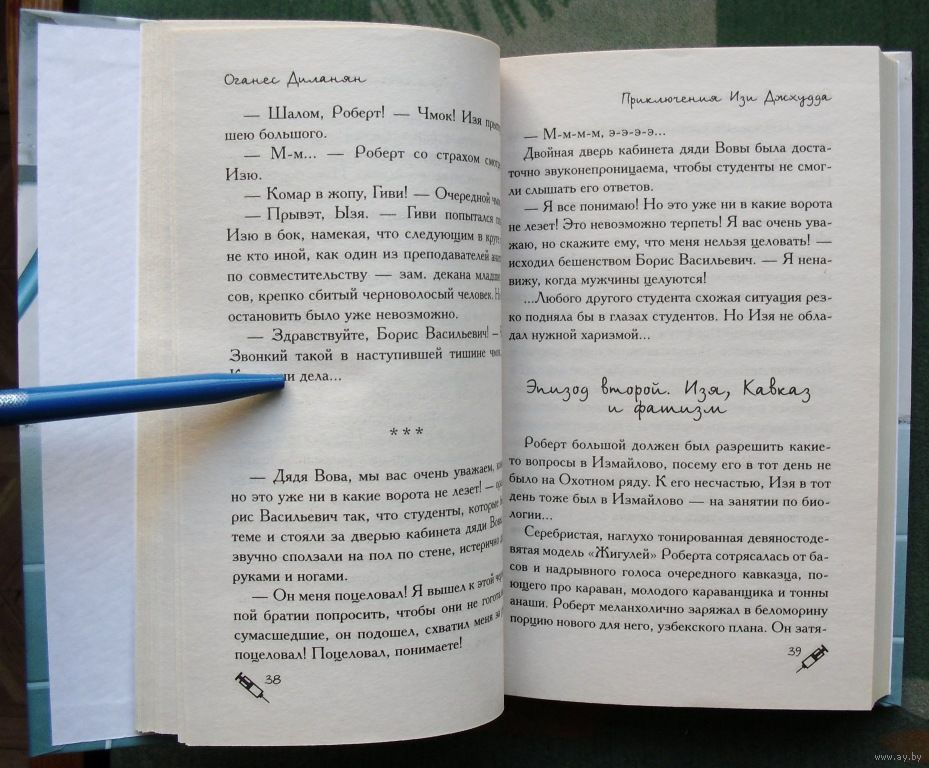 Оганес Диланян
— Шалом, Роберт! — Чмок! Изя
шею большого.
— М-м... — Роберт со страхом
Изю.
— Комар в жопу, Гиви! — Очередной
— Прывэт, Ызя. — Гиви попытался
Изю в бок, намекая, что следующим в
не кто иной, как один из преподавателей
по совместительству — зам. декана
сов, крепко сбитый черноволосый человек.
остановить было уже невозможно.
— Здравствуйте, Борис Васильевич! —
Звонкий такой в наступившей тишине
дела...
***
— Дядя Вова, мы вас очень уважаем,
но это уже ни в какие ворота не лезет! —
рис Васильевич так, что студенты, которые
теме и стояли за дверью кабинета дяди
звучно сползали на пол по стене, истерично
руками и ногами.
— Он меня поцеловал! Я вышел к этой
пой братии попросить, чтобы они не
сумасшедшие, он подошел, схватил меня за
поцеловал! Поцеловал, понимаете!
38
Приключения Изи Джхудда
— М-м-м-м, э-э-э-э...
Двойная дверь кабинета дяди Вовы была доста-
точно звуконепроницаема, чтобы студенты не смог-
ли слышать его ответов.
— Я все понимаю! Но это уже ни в какие ворота
не лезет! Это невозможно терпеть! Я вас очень ува-
жаю, но скажите ему, что меня нельзя целовать! —
исходил бешенством Борис Васильевич. — Я нена-
вижу, когда мужчины целуются!
...Любого другого студента схожая ситуация рез-
ко подняла бы в глазах студентов. Но Изя не обла-
дал нужной харизмой...
Эпизод второй. Изя, Кавказ
и фашизм
Роберт большой должен был разрешить какие-
то вопросы в Измайлово, посему его в тот день не
было на Охотном ряду. К его несчастью, Изя в тот
день тоже был в Измайлово — на занятии по био-
логии...
Серебристая, наглухо тонированная девяностоде-
вятая модель «Жигулей» Роберта сотрясалась от ба-
сов и надрывного голоса очередного кавказца, по-
ющего про караван, молодого караванщика и тонны
анаши. Роберт меланхолично заряжал в беломорину
порцию нового для него, узбекского плана. Он затя-
39
www.ay.by